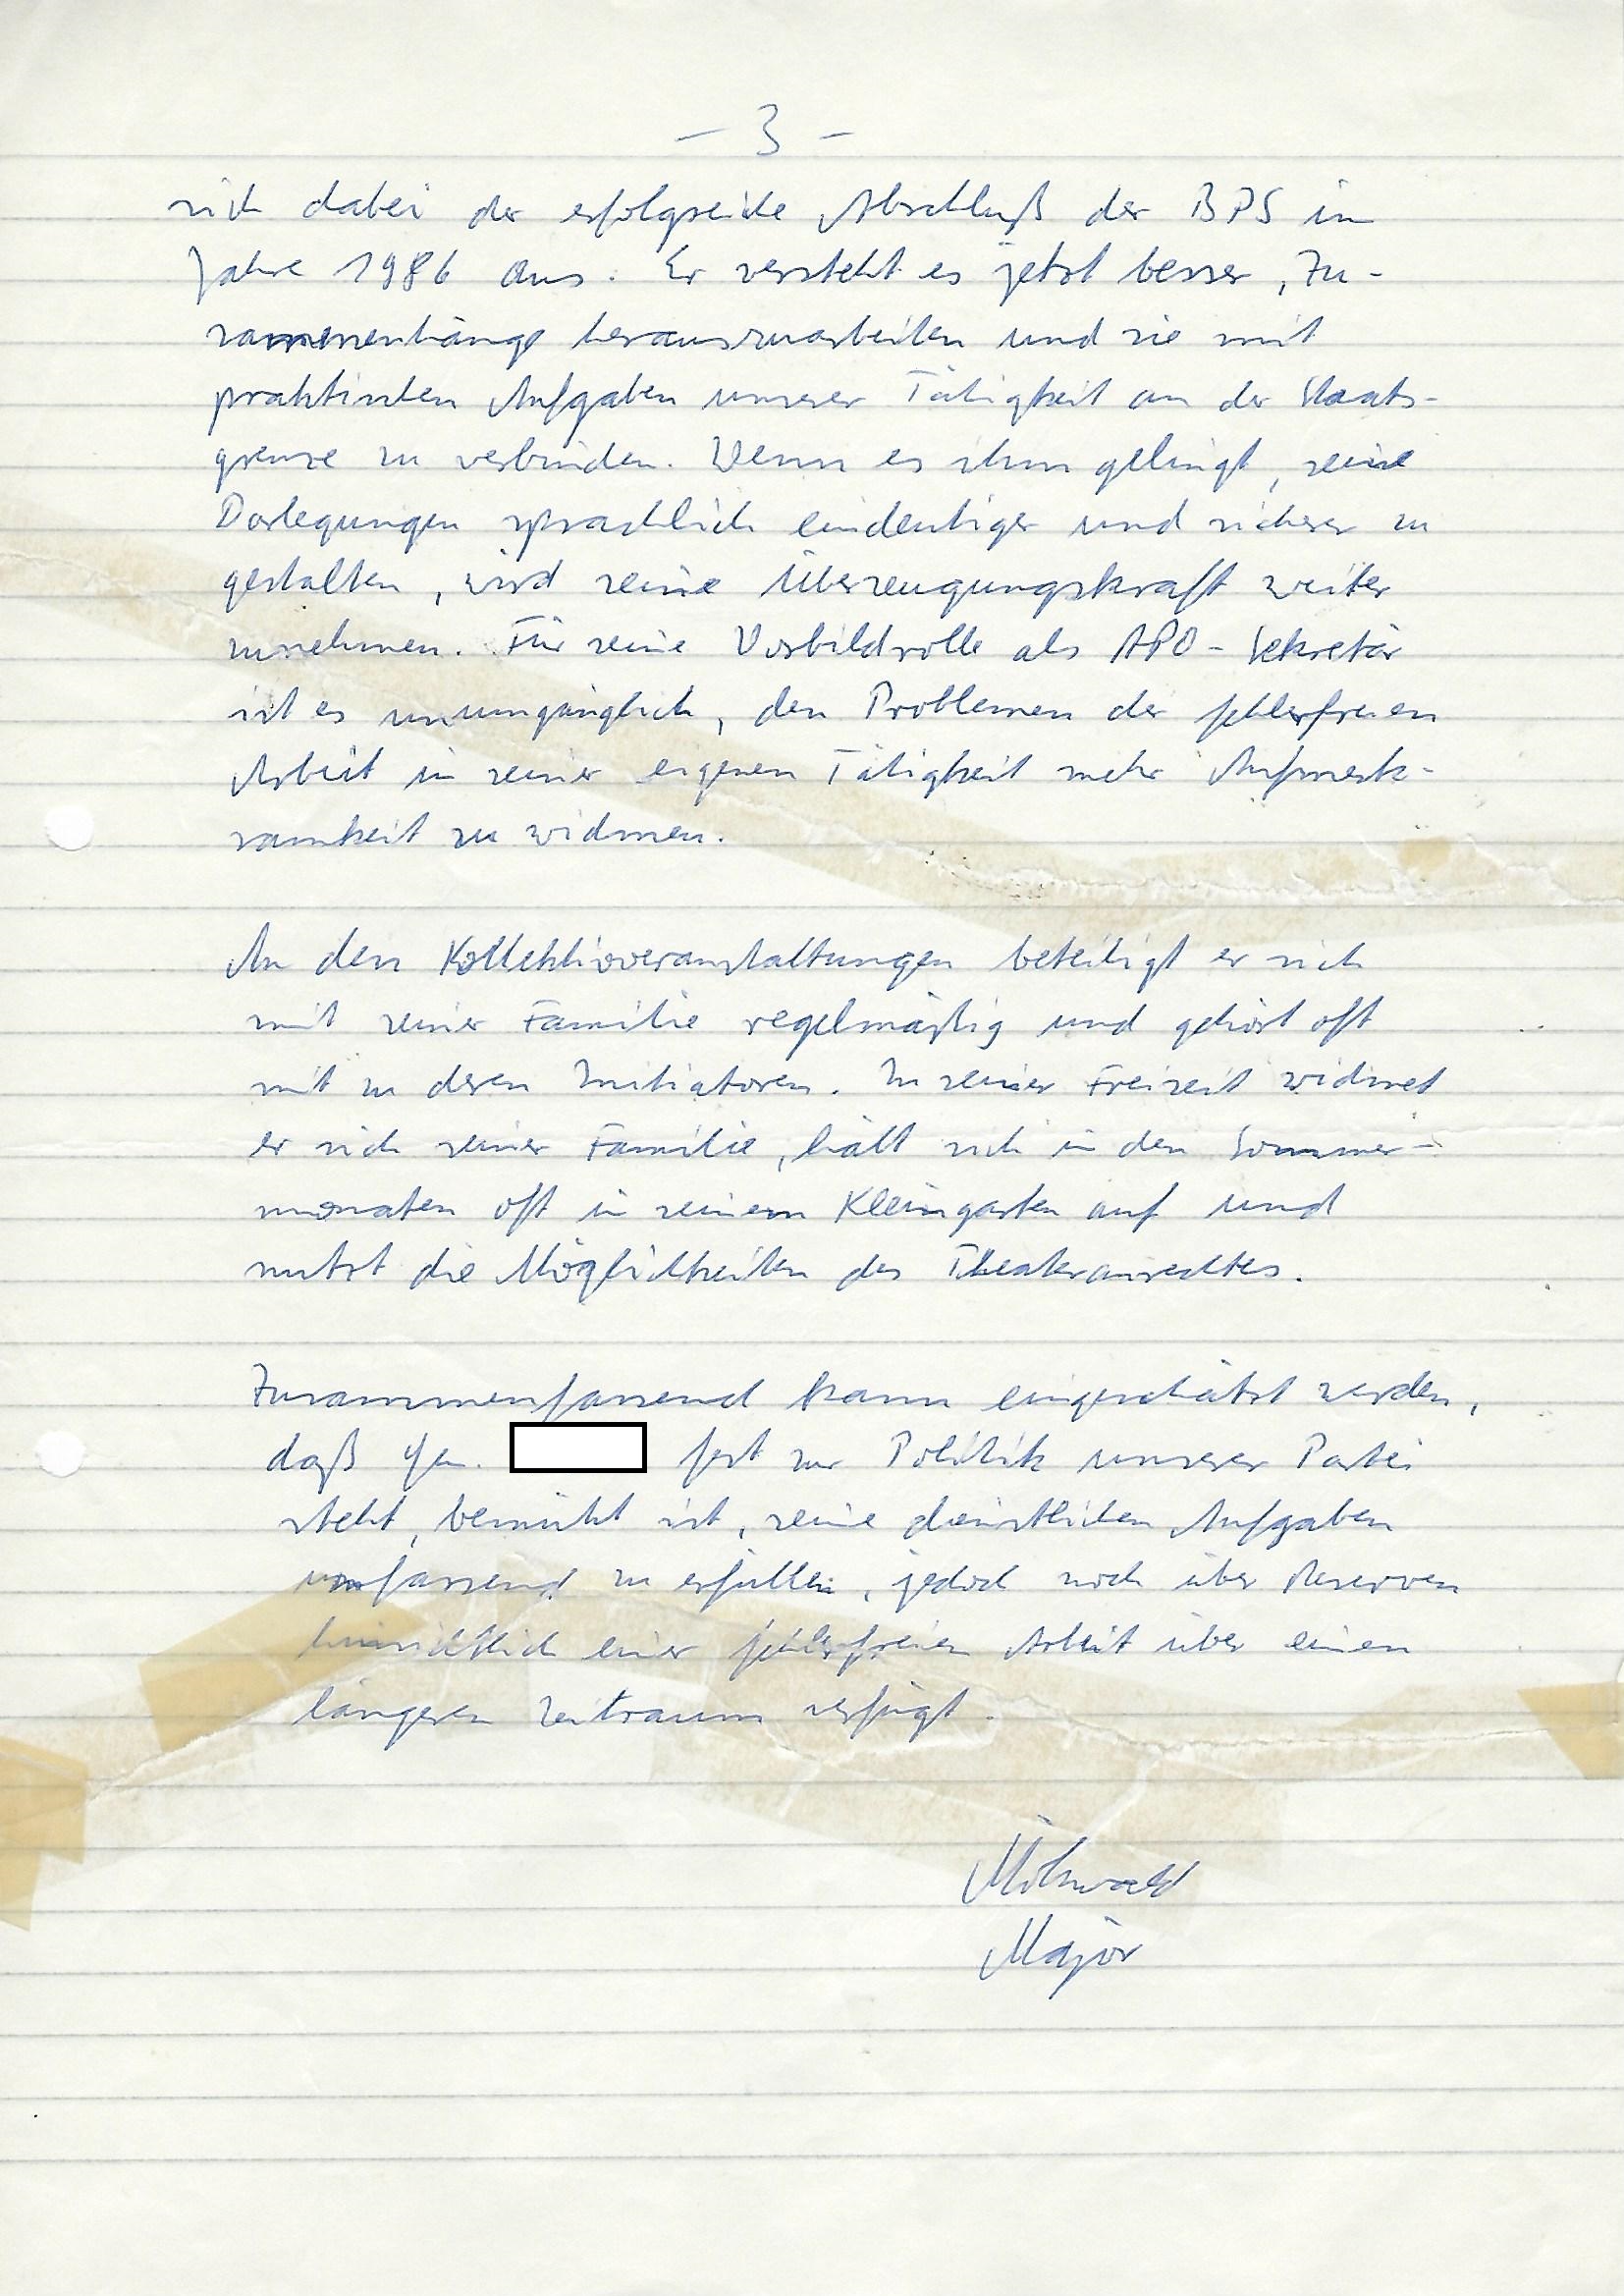 - 3 -
sich dabei der erfolgreiche Abschluß der BPS im
Jahre 1986 aus. Er versteht es jetzt besser, Zu-
sammenhänge herauszuarbeiten und sie mit
praktischen Aufgaben unserer Tätigkeit an der Staats-
grenze zu verbinden. Wenn es ihm gelingt, seine
Darlegungen sprachlich eindeutiger und sicherer zu
gestalten, wird seine Überzeugungskraft weiter
zunehmen. Für seine Vorbildrolle als APO-Sekretär
ist es unumgänglich, den Problemen der fehlerfreien
Arbeit in seiner eigenen Tätigkeit mehr Aufmerk-
samkeit zu widmen.
An den Kollektivveranstaltungen beteiligt er sich
mit seiner Familie regelmäßig und gehört oft
mit zu deren Initiatoren. In seiner Freizeit widmet
er sich seiner Familie, hält sich in den Sommer-
monaten oft in seinem Kleingarten auf und
nutzt die Möglichkeiten des Theateranrechtes.
Zusammenfassend kann eingeschätzt werden,
daß Gen. fest zur Politik unserer Partei
steht, bemüht ist, seine dienstlichen Aufgaben
umfassend zu erfüllen, jedoch noch über Reserven
hinsichtlich einer fehlerfreien Arbeit über einen
längeren Zeitraum verfügt.
Major